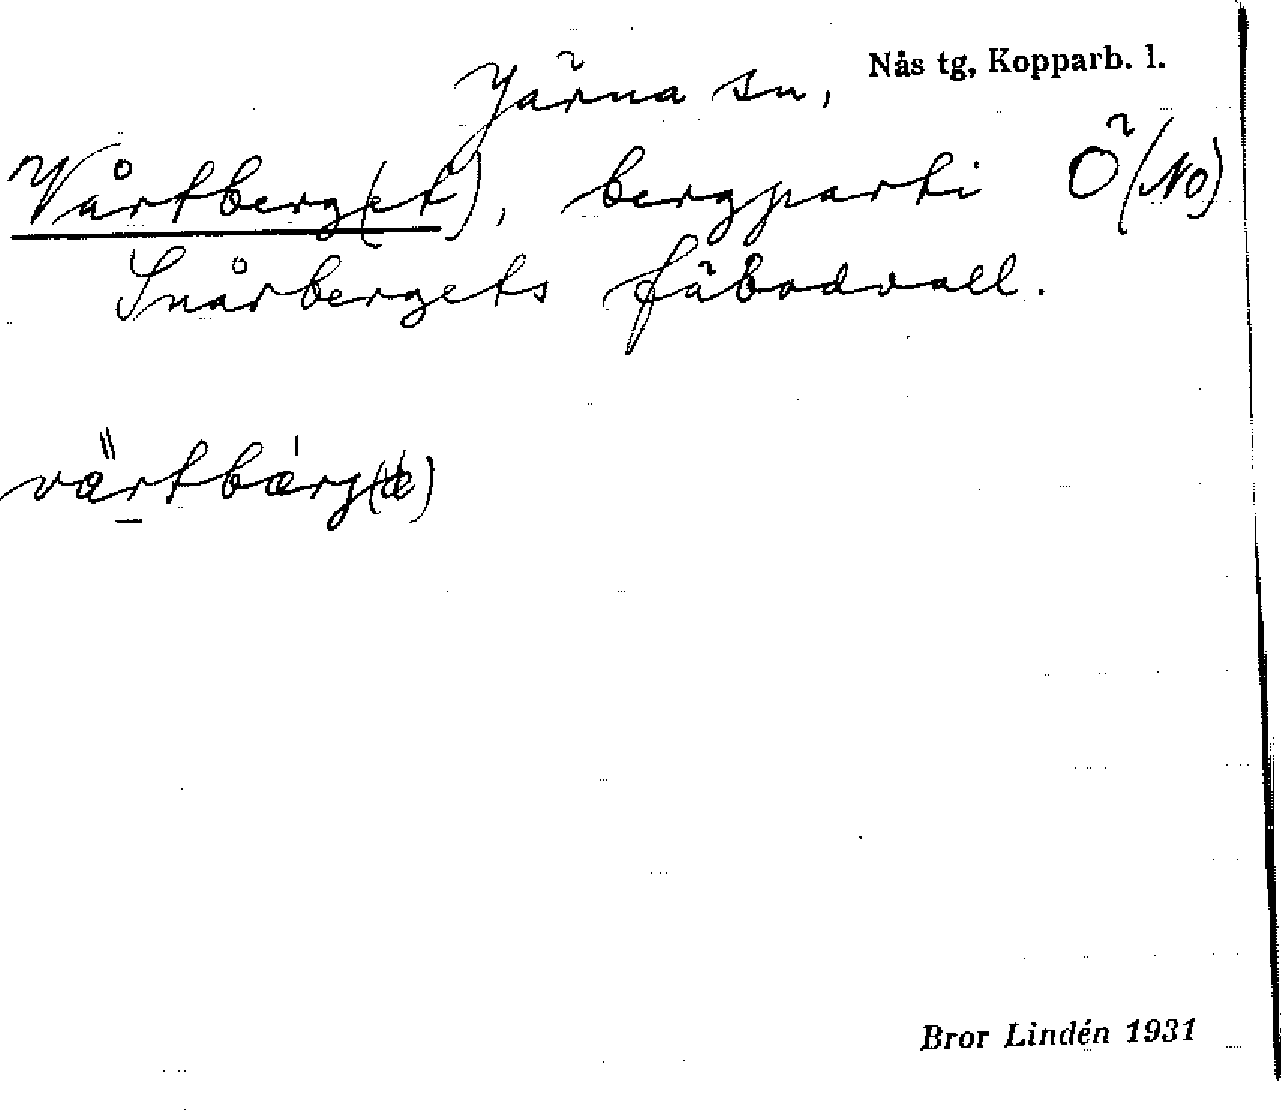 Järna sn, Nås tg, Kopparb. l.
Vårtberg(et), bergparti Ö (NO)
Snårbergets fäbodvall.
vä̀rtbærj(æ)
Bror Lindén 1931